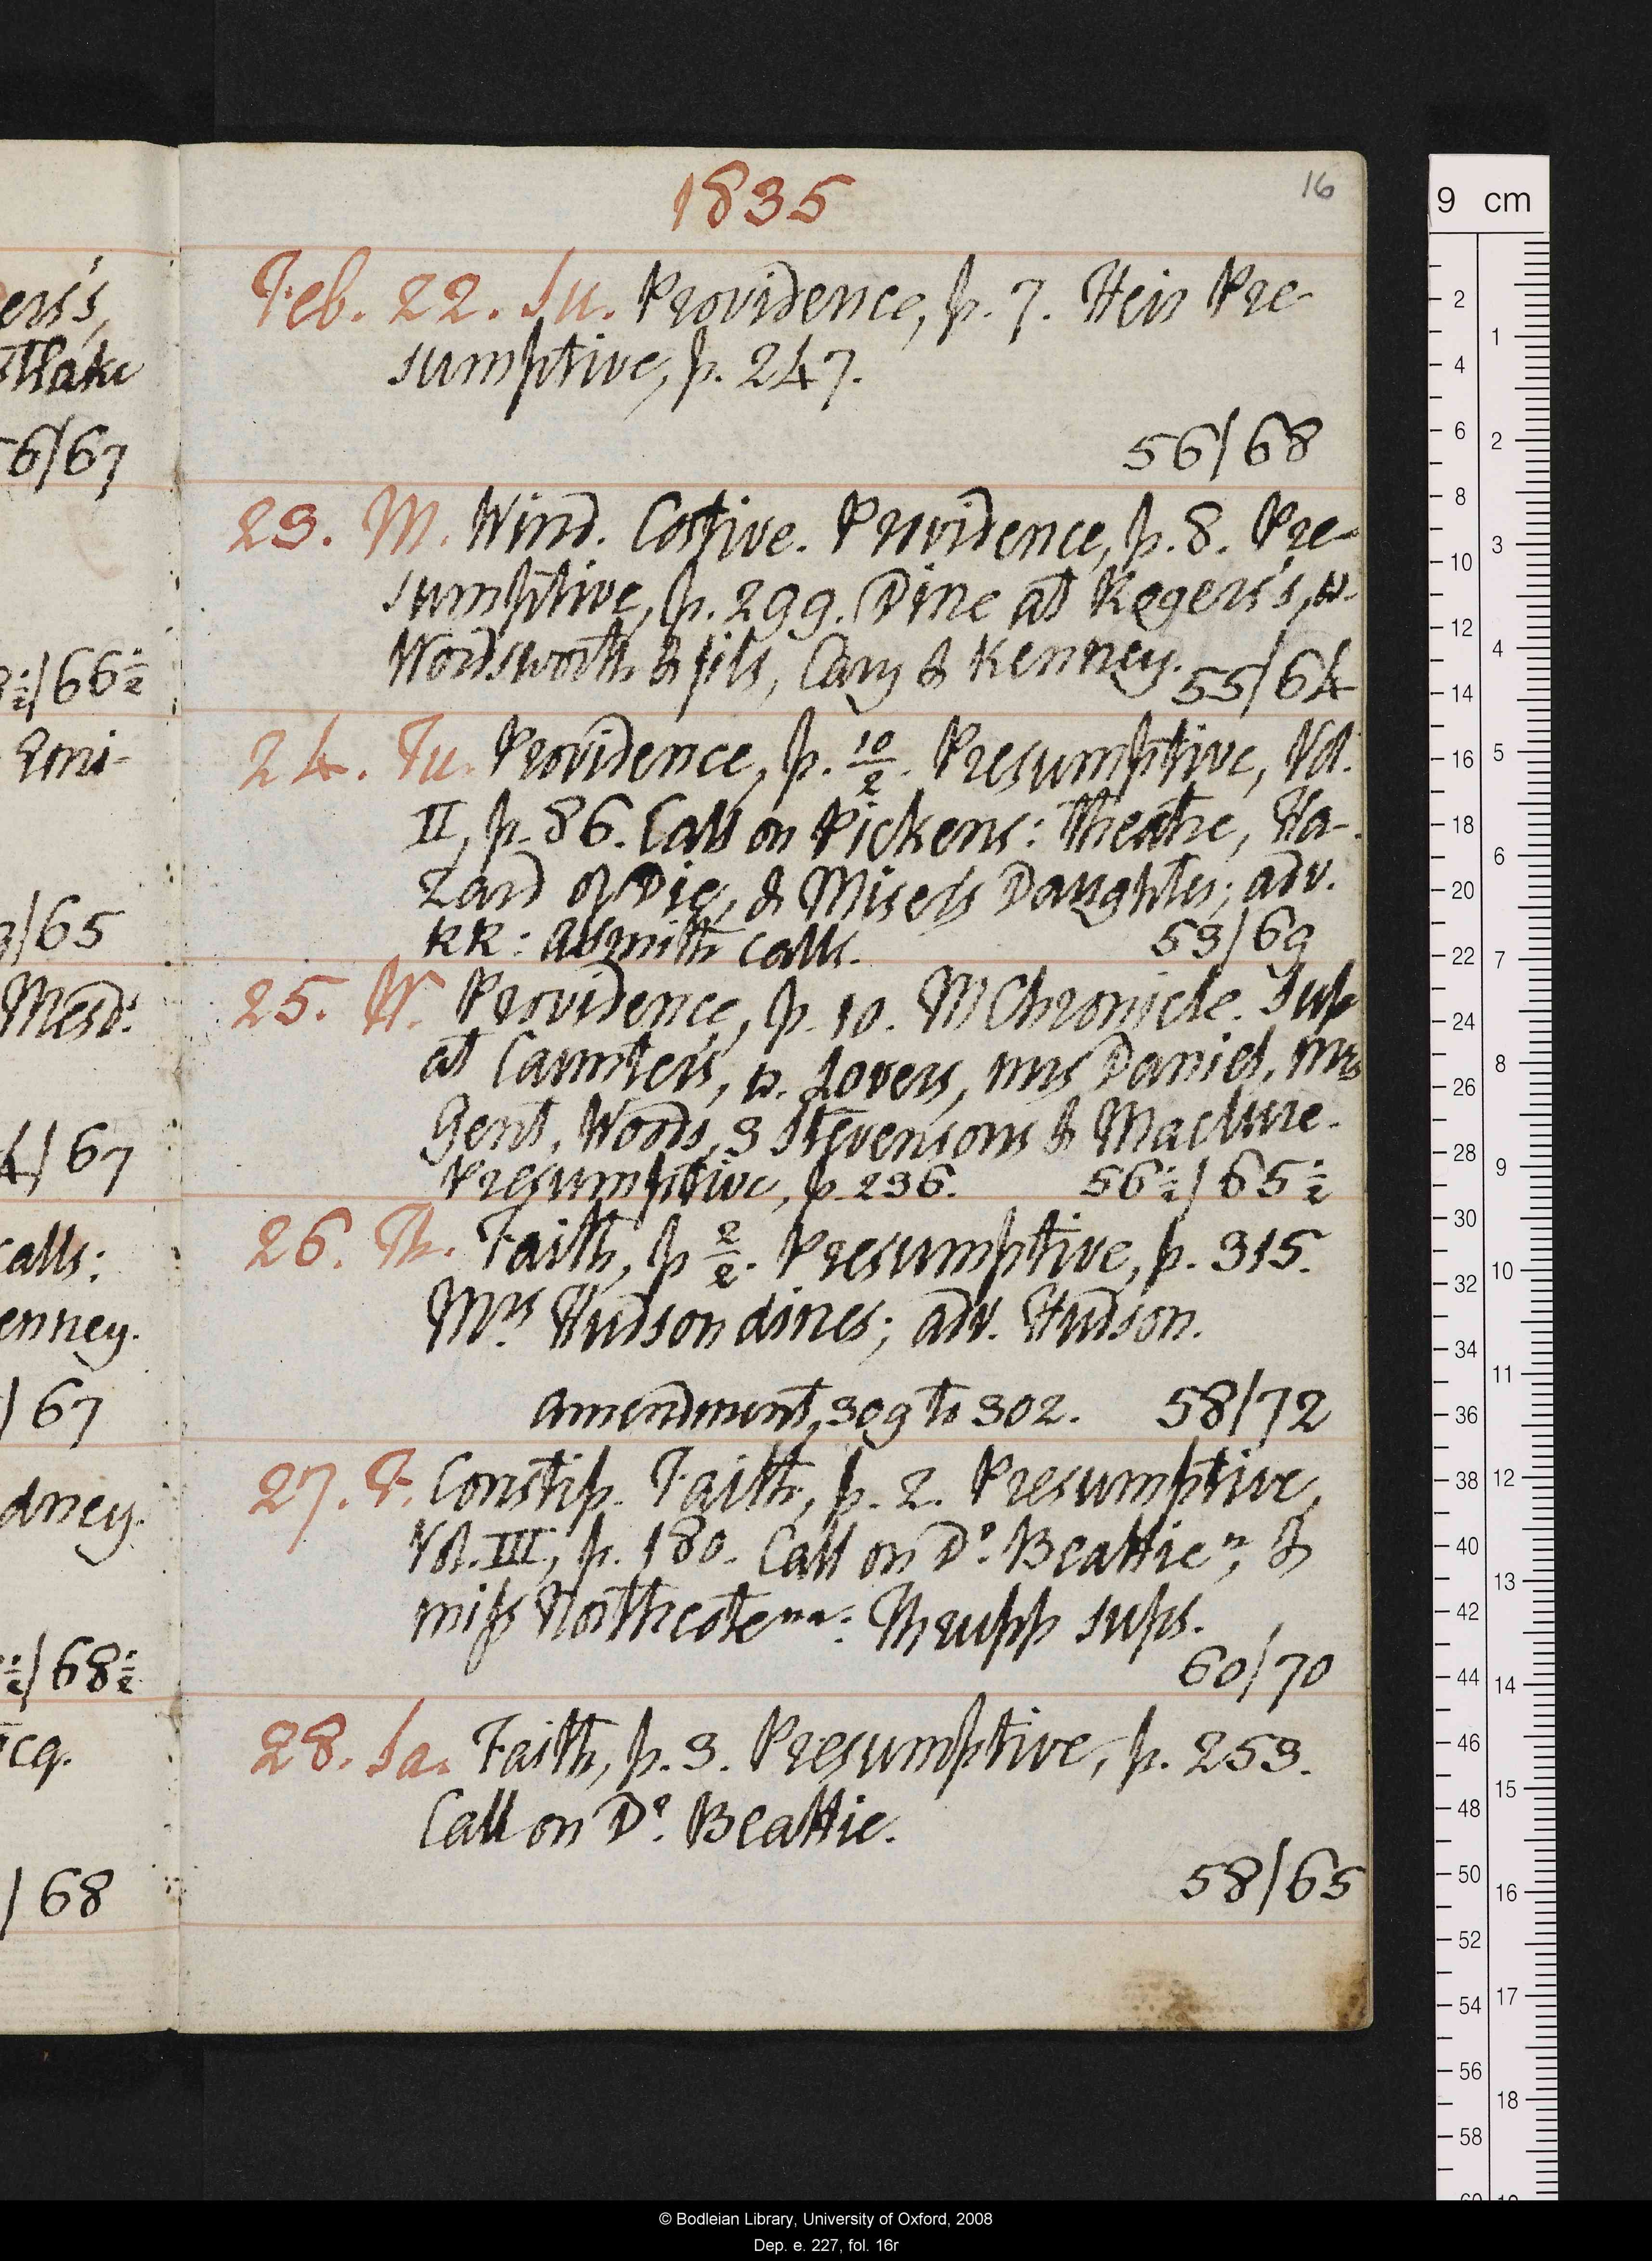 1835
16
Feb. 22. Su. Providence, p. 7. Heir Pre-
sumptive, p. 247.
56/68
23. M. Wind. Costive. Providence, p. 8. Pre-
sumptive, p. 299. Dine at Rogers's, w.
Wordsworth & fils, Cary & Kenney.
55/64
24. Tu. Providence, p. 10/2. Presumptive, Vol.
II, p. 86. Call on Pickens: Theatre, Ha-
zard of Die, & Miser's Daughter; adv.
RR: calls.
53/69
25. W. Providence, p. 10. M Chronicle. Sup
at Caunter's, w. Lovers, mrs Daniel, mrs
Gent, Woods, 3 Stevensons & Maclure.
Presumptive, p. 236.
56½/65½
26. Th. Faith, p 2/2. Presumptive, p. 315.
Mrs Hudson dines; adv. Hudson.
Amendment, 309 to 302.
58/72
27. F. Constip. Faith, p. 2. Presumptive,
Vol. III, p. 180. Call on Dr. Beattie n, &
miss Northcote na: Thrupp sups.
60/70
28. Sa. Faith, p. 3. Presumptive, p. 253.
Call on Dr. Beattie.
58/65
ers's,
6/67
/66½
3/65
Mesd.
4/67
calls:
enney.
/67
dney.
/68½
/68
9 cm
2
4
6
8
10
12
14
16
18
20
22
24
26
28
30
32
34
36
38
40
42
44
46
48
50
52
54
56
58
1
2
3
4
5
6
7
8
9
10
11
12
13
14
15
16
17
18
© Bodleian Library, University of Oxford, 2008
Dep. e. 227, fol. 16r